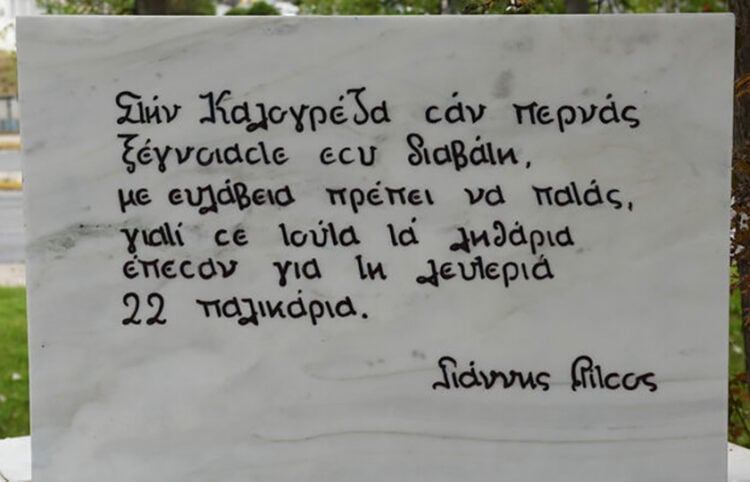 Στήν Καλογρέζα σάν περνάς
ξέγνοιαστε εσυ διαβάτη,
με ευλάβεια πρέπει να πατάς,
γιατί σε τούτα τά ληθάρια
έπεσαν για τη λευτεριά
22 παλικάρια.
Γιάννης Ρίτσος